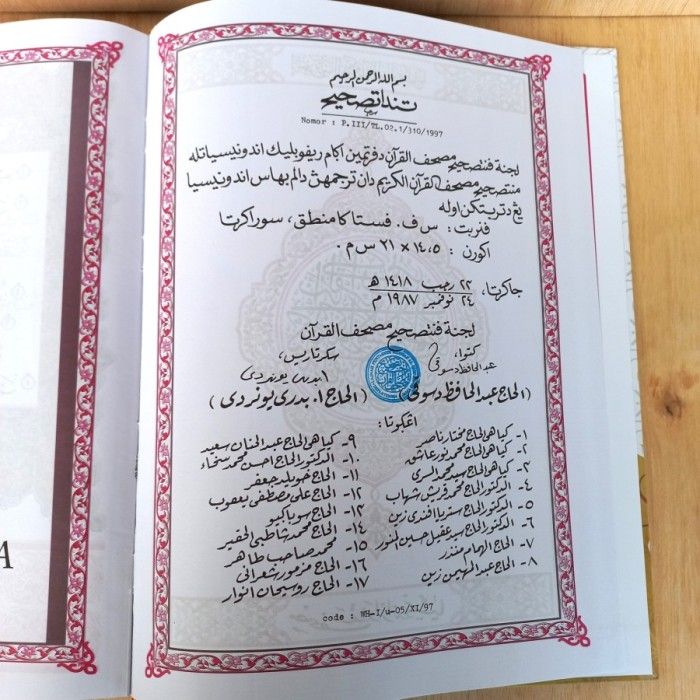 بسم الله الرحمن الرحيم
تندا تصحيح
Nomor : P.III/TL.02.1/310/1997
لجنة فنتصحيح مصحف القرآن دفرتمين اݢام ريفوبليك اندونيسيا تله
منتصحيح مصحف القرآن الكريم دان ترجمهن دالم بهاس اندونيسيا
يڠ دتربتكن اوله
فنربت : س ف. فستاكا منطق، سوراكرتا
اكورن : ١٤،٥ × ٢١ س م٠
جاكرتا، ٢٢ رجب ١٤١٨ هـ
٢٤ نوفمبر ١٩٨٧ م
لجنة فنتصحيح مصحف القرآن
كتوا، سكرتاريس،
عبد الحافظ دسوقي
(الحاج عبد الحافظ دسوقي) (الحاج ا. بدري يونردي)
اڠݢوتا :
١- كياهي الحاج مختار ناصر
٢- كياهي الحاج محمد نور عاشق
٣- كياهي الحاج سيد محمد السري
٤- الدكتور الحاج محمد قريش شهاب
٥- الدكتور الحاج ستريا افندي زين
٦- الدكتور الحاج سيد عقيل حسين المنور
٧- الحاج الهمام منذر
٨- الحاج عبد المهيمن زين
٩- كياهي الحاج عبد المنان سعيد
١٠- الدكتور الحاج احسن محمد سخاء
١١- الحاج خويلد جعفر
١٢- الحاج علي مصطفى يعقوب
١٣- الحاج سوباكيو
١٤- الحاج محمد شاطبي الحقير
١٥- محمد صاحب طاهر
١٦- الحاج مزمور شعراني
١٧- الحاج روسيحان انوار
code : WH-I/u-05/XI/97
A